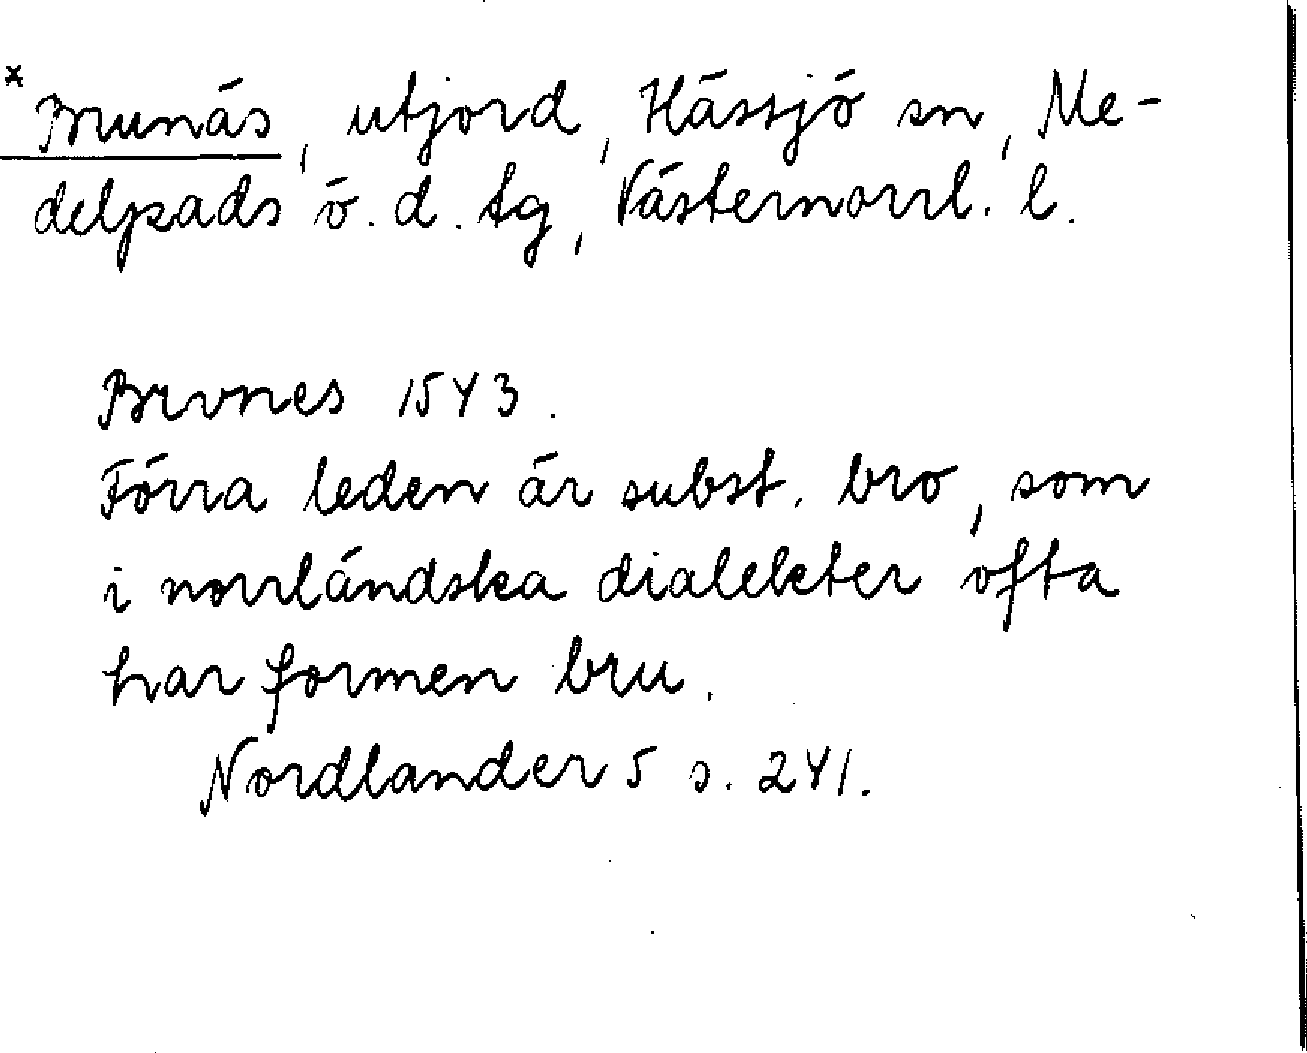 * Brunäs, utjord, Hässjö sn, Me-
delpads ö. d. tg, Västernorrl. l.
Brvnes 1543.
Förra leden är subst. bro, som
i norrländska dialekter ofta
har formen bru.
Nordlander 5 s. 241.